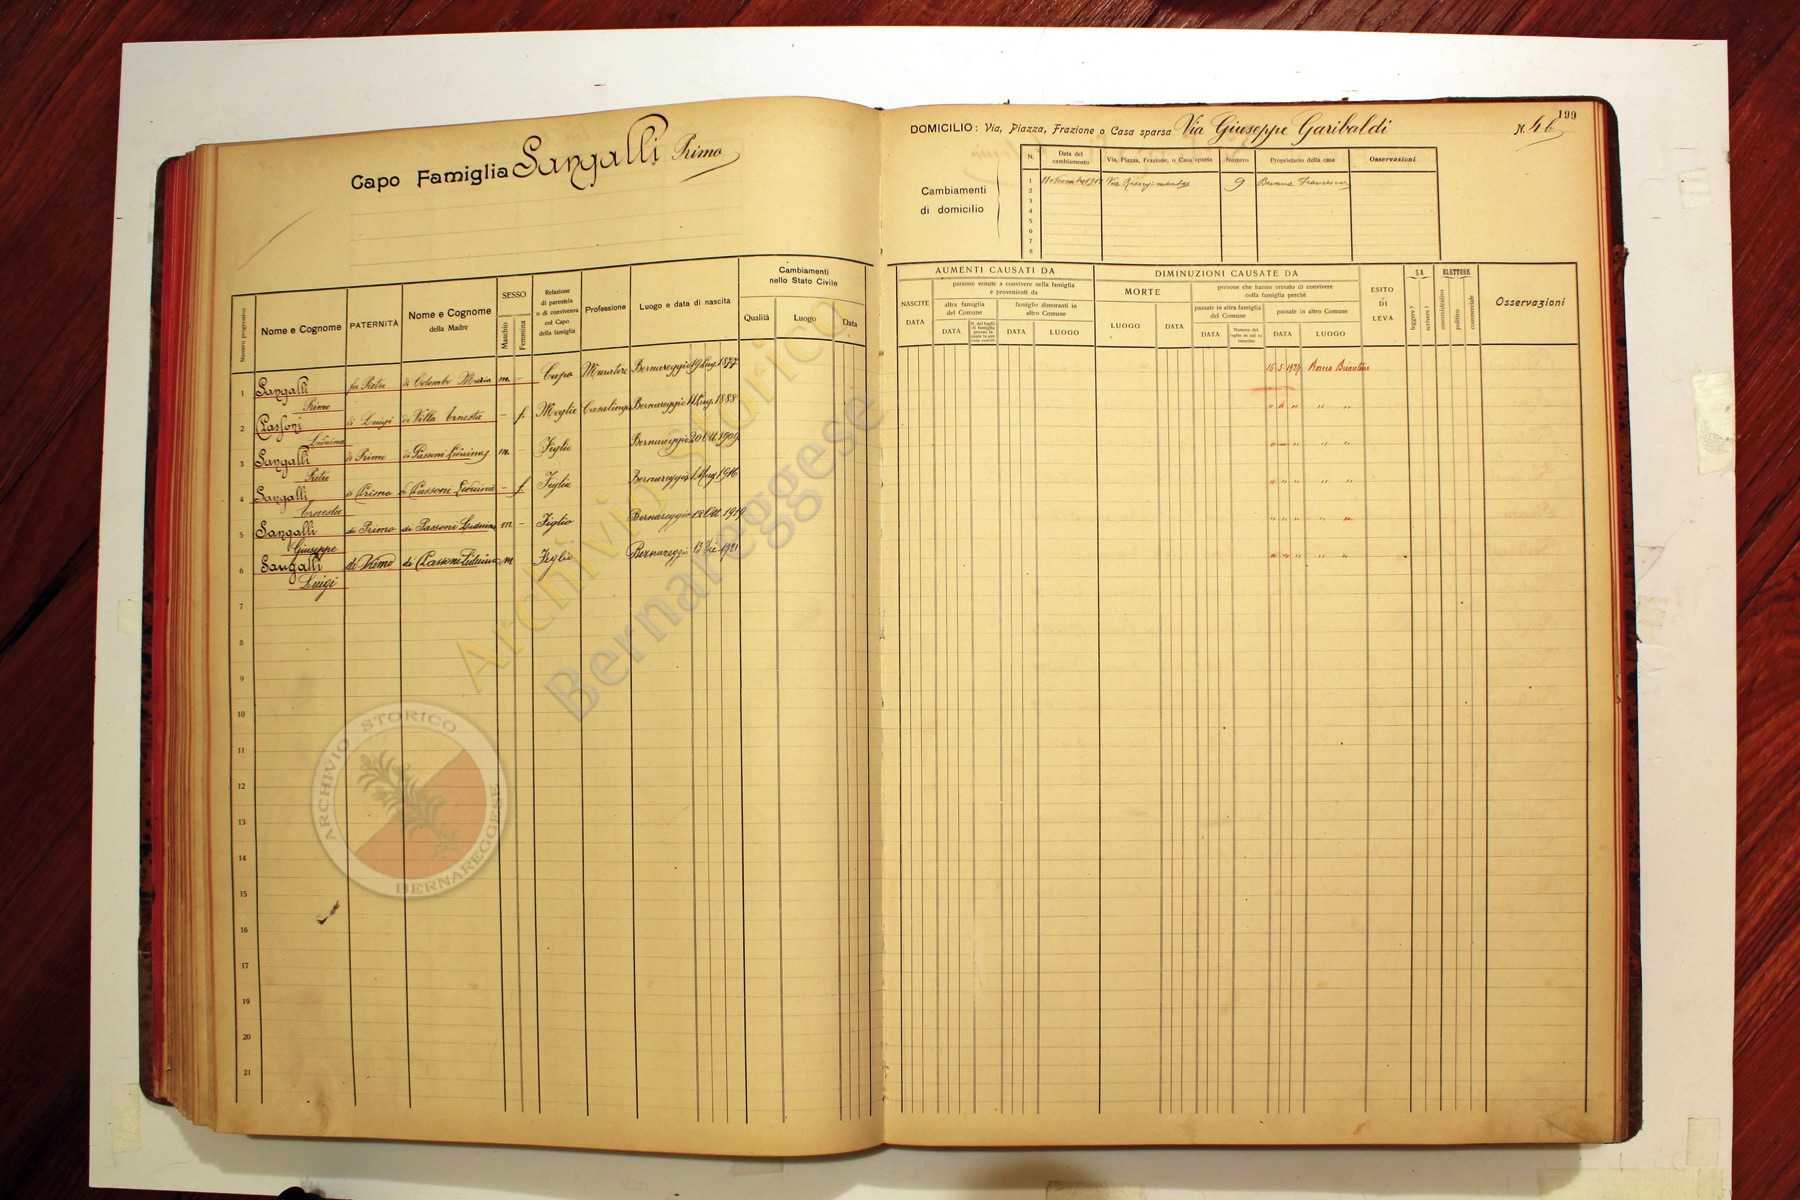 Capo Famiglia Sangalli Primo
Numero progressivo
Nome e Cognome
PATERNITÀ
Nome e Cognome
della Madre
SESSO
Maschio
Femmina
Relazione
di parentela
o di convivenza
col Capo
della famiglia
Professione
Luogo e data di nascita
Cambiamenti
nello Stato Civile
Qualità
Luogo
Data
1 Sangalli fu Pietro di Colombo Maria m. - Capo Muratore Bernareggio 19 Lug. 1877
Primo
2 Passoni di Luigi di Villa Ernesta - f. Moglie Casalinga Bernareggio 1888
Liduina
3 Sangalli di Primo di Passoni Liduina m. - Figlio Bernareggio 20 Ott. 1909
Pietro
4 Sangalli di Primo di Passoni Liduina - f Figlia Bernareggio 1916
Ernesta
5 Sangalli di Primo di Passoni Liduina m - Figlio Bernareggio 12 Ott. 1919
Giuseppe
6 Sangalli di Primo di Passoni Liduina m Figlio Bernareggio 13 Dic 1921
Luigi
7
8
9
10
11
12
13
14
15
16
17
19
20
21
199
DOMICILIO: Via, Piazza, Frazione o Casa sparsa Via Giuseppe Garibaldi N. 46
Cambiamenti
di domicilio
N.
Data del
cambiamento
Via, Piazza, Frazione, o Casa sparsa
Numero
Proprietario della casa
Osservazioni
1 Via Risorgimento 9 Francesco
2
3
4
5
6
7
8
AUMENTI CAUSATI DA
NASCITE
DATA
persone venute a convivere nella famiglia
e provenienti da
altra famiglia
del Comune
DATA
famiglie dimoranti in
altro Comune
DATA
LUOGO
DIMINUZIONI CAUSATE DA
MORTE
LUOGO
DATA
persone che hanno cessato di convivere
colla famiglia perchè
passate in altra famiglia
del Comune
DATA
passate in altro Comune
DATA
LUOGO
ESITO
DI
LEVA
SA
leggere?
scrivere?
ELETTORE
amministrativo
politico
commerciale
Osservazioni
Archivio Storico
Bernareggese
ARCHIVIO STORICO
BERNAREGGESE